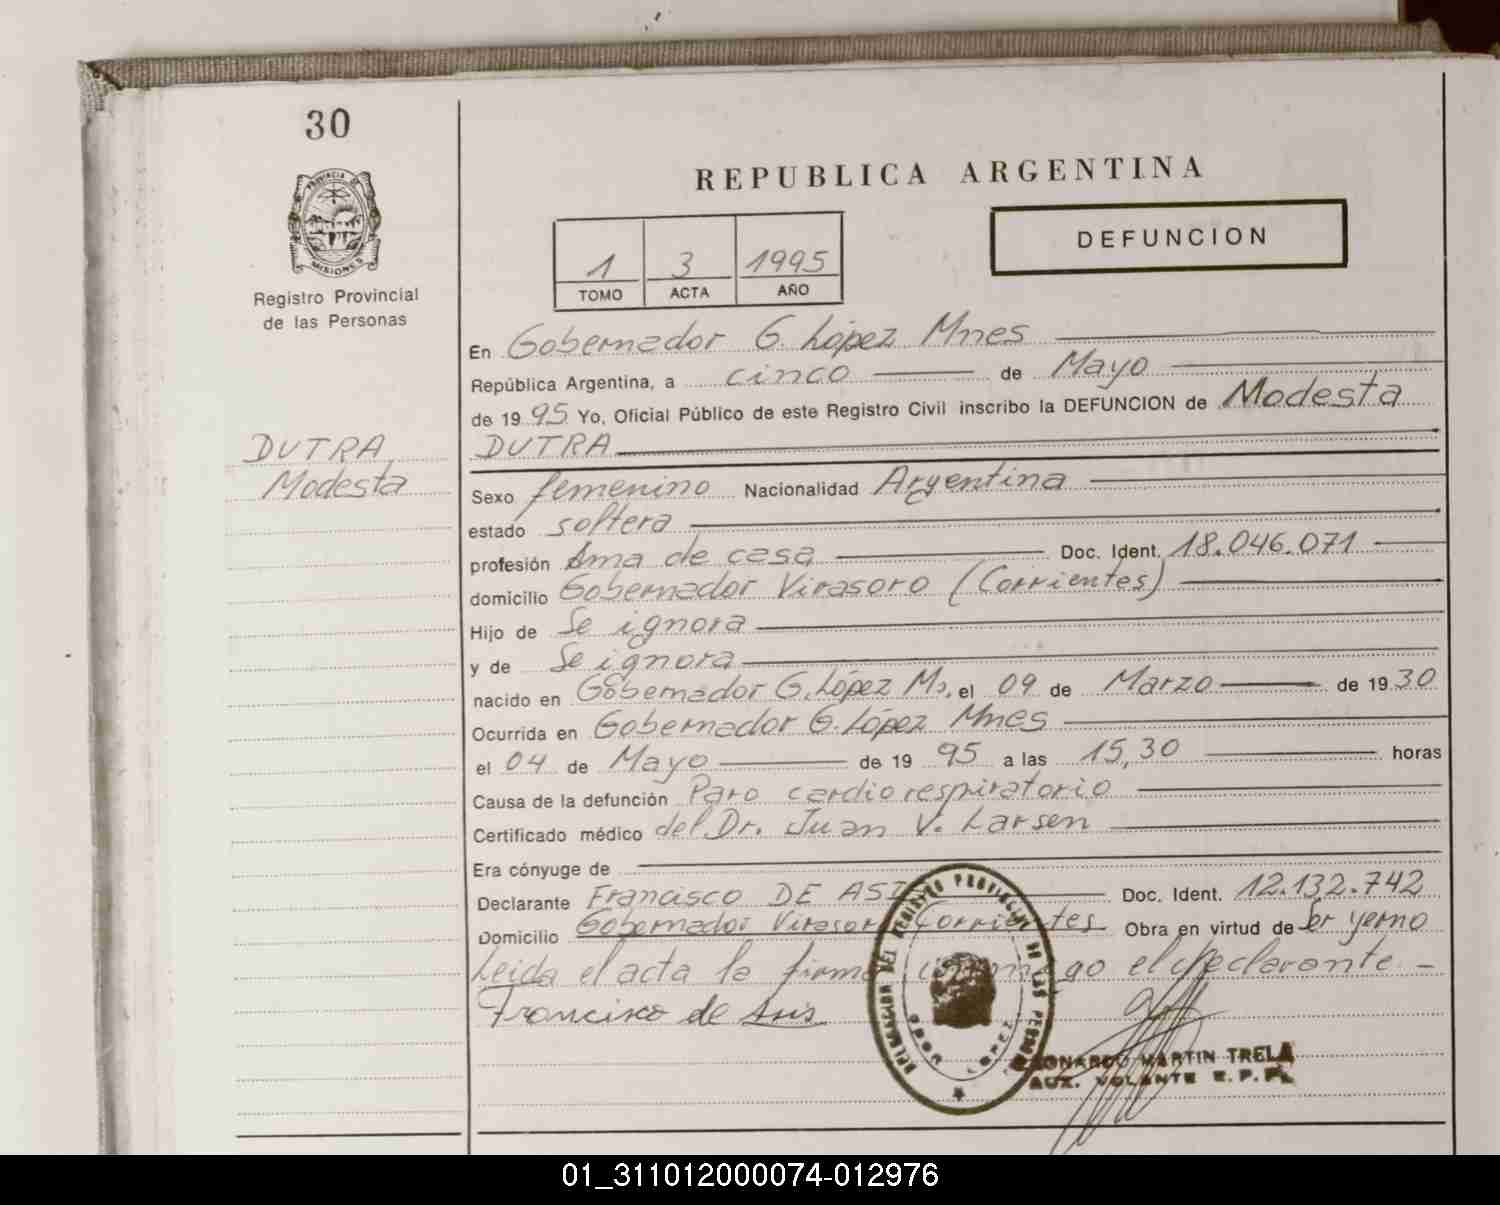 30
PROVINCIA DE
MISIONES
Registro Provincial
de las Personas
DUTRA
Modesta
REPUBLICA ARGENTINA
1 3 1995
TOMO ACTA AÑO
DEFUNCION
En Gobernador G. López Mnes
República Argentina, a cinco de Mayo
de 1995 Yo, Oficial Público de este Registro Civil inscribo la DEFUNCION de Modesta
DUTRA
Sexo femenino Nacionalidad Argentina
estado soltera
profesión Ama de casa Doc. Ident. 18.046.071
domicilio Gobernador Virasoro (Corrientes)
Hijo de Se ignora
y de Se ignora
nacido en Gobernador G. López Ms. el 09 de Marzo de 1930
Ocurrida en Gobernador G. López Mnes
el 04 de Mayo de 1995 a las 15,30 horas
Causa de la defunción Paro cardiorespiratorio
Certificado médico del Dr. Juan V. Larsen
Era cónyuge de
Declarante Francisco DE ASI Doc. Ident. 12.132.742
Domicilio Gobernador Virasoro Corrientes Obra en virtud de Er yerno
Leida el acta la firma conmigo el declarante
Francisco de Asis
DELEGACION DEL REGISTRO PROVINCIAL DE LAS PERSONAS
GDOR LOPEZ
LEONARDO MARTIN TRELA
AUX. VOLANTE R. P. P.
01_311012000074-012976